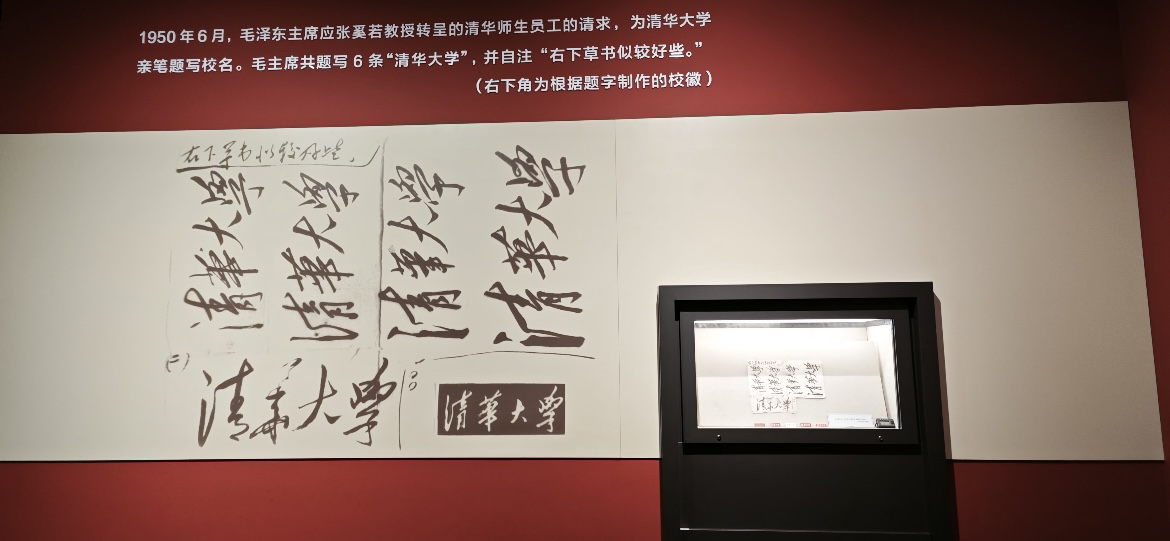 1950年6月，毛泽东主席应张奚若教授转呈的清华师生员工的请求，为清华大学
亲笔题写校名。毛主席共题写6条“清华大学”，并自注“右下草书似较好些。”
（右下角为根据题字制作的校徽）
右下草书似较好些。
清華大學
清華大學
清華大學
清華大學
(二)
清華大學
清華大學